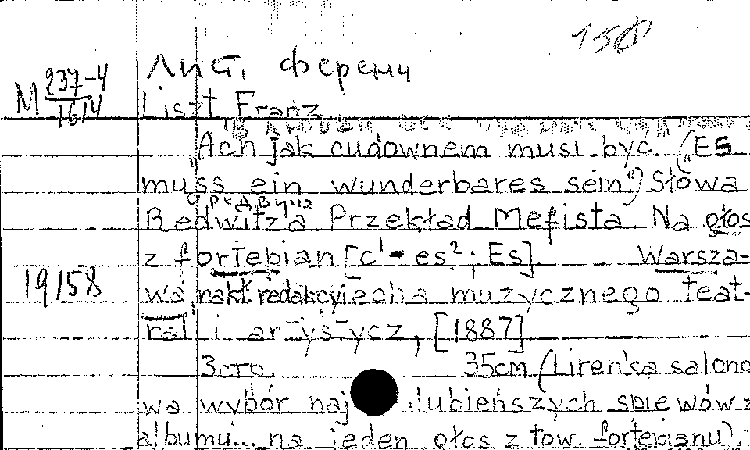 150
Лист, Ференц
М 237-4
1614
Liszt Franz
Ach jak cudownem musi być. ("Es
muss ein wunderbares sein") Słowa
Redwitza Przekład Mefista Na głos
z fortebian [c¹-es²; Es]. Warsza-
19158
wa, nakł. redakcyi echa muzycznego teat-
ral i artystycz, [1887]
3 стр. 35cm (Liren'ka salono
wa wybór naj lubieńszych śpiewów z
albumu... na jeden głos z tow. fortepianu).